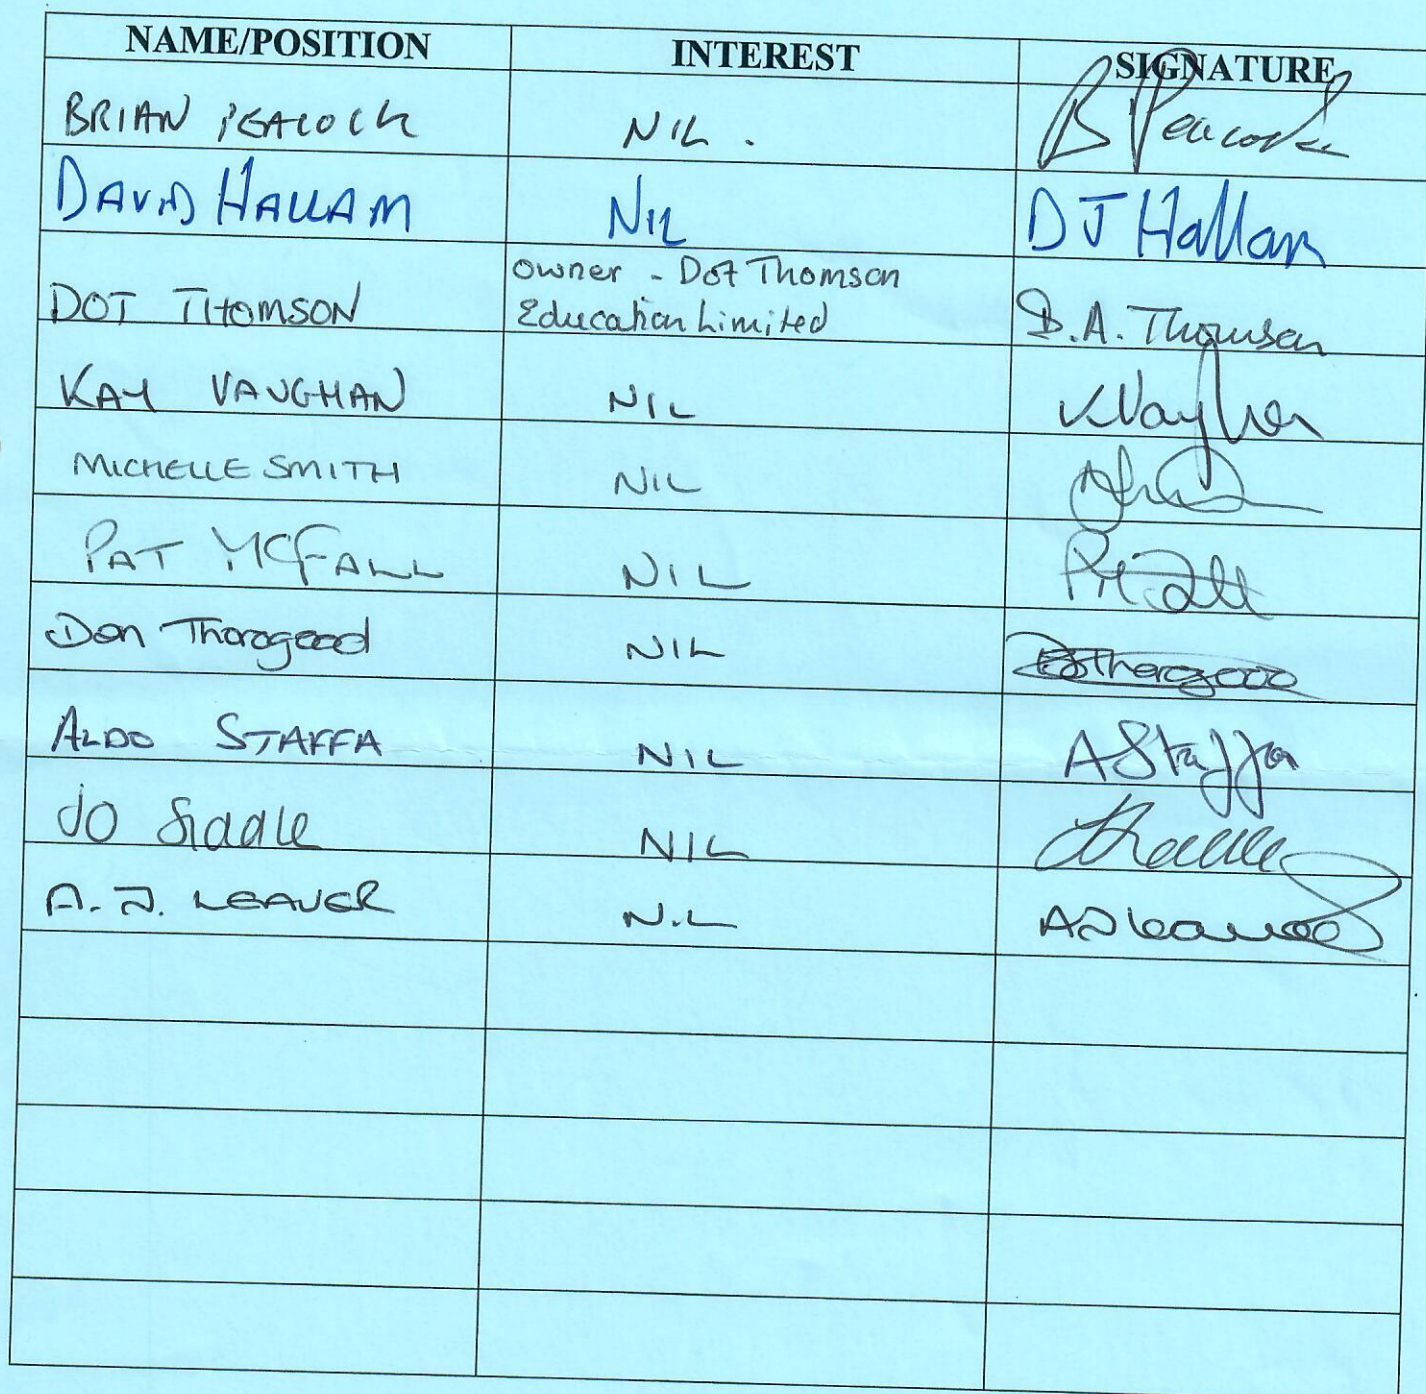 NAME/POSITION INTEREST SIGNATURE
BRIAN PEACOCK NIL. B Peacock
DAVID HALLAM NIL DJ Hallam
DOT THOMSON owner - Dot Thomson
Education Limited D.A. Thomson
KAY VAUGHAN NIL KVaughan
MICHELLE SMITH NIL
PAT MCFALL NIL
Don Thorogood NIL Thorogood
ALDO STAFFA NIL AStaffa
JO Siddle NIL
A. J. LEAVER NIL AJLeaver